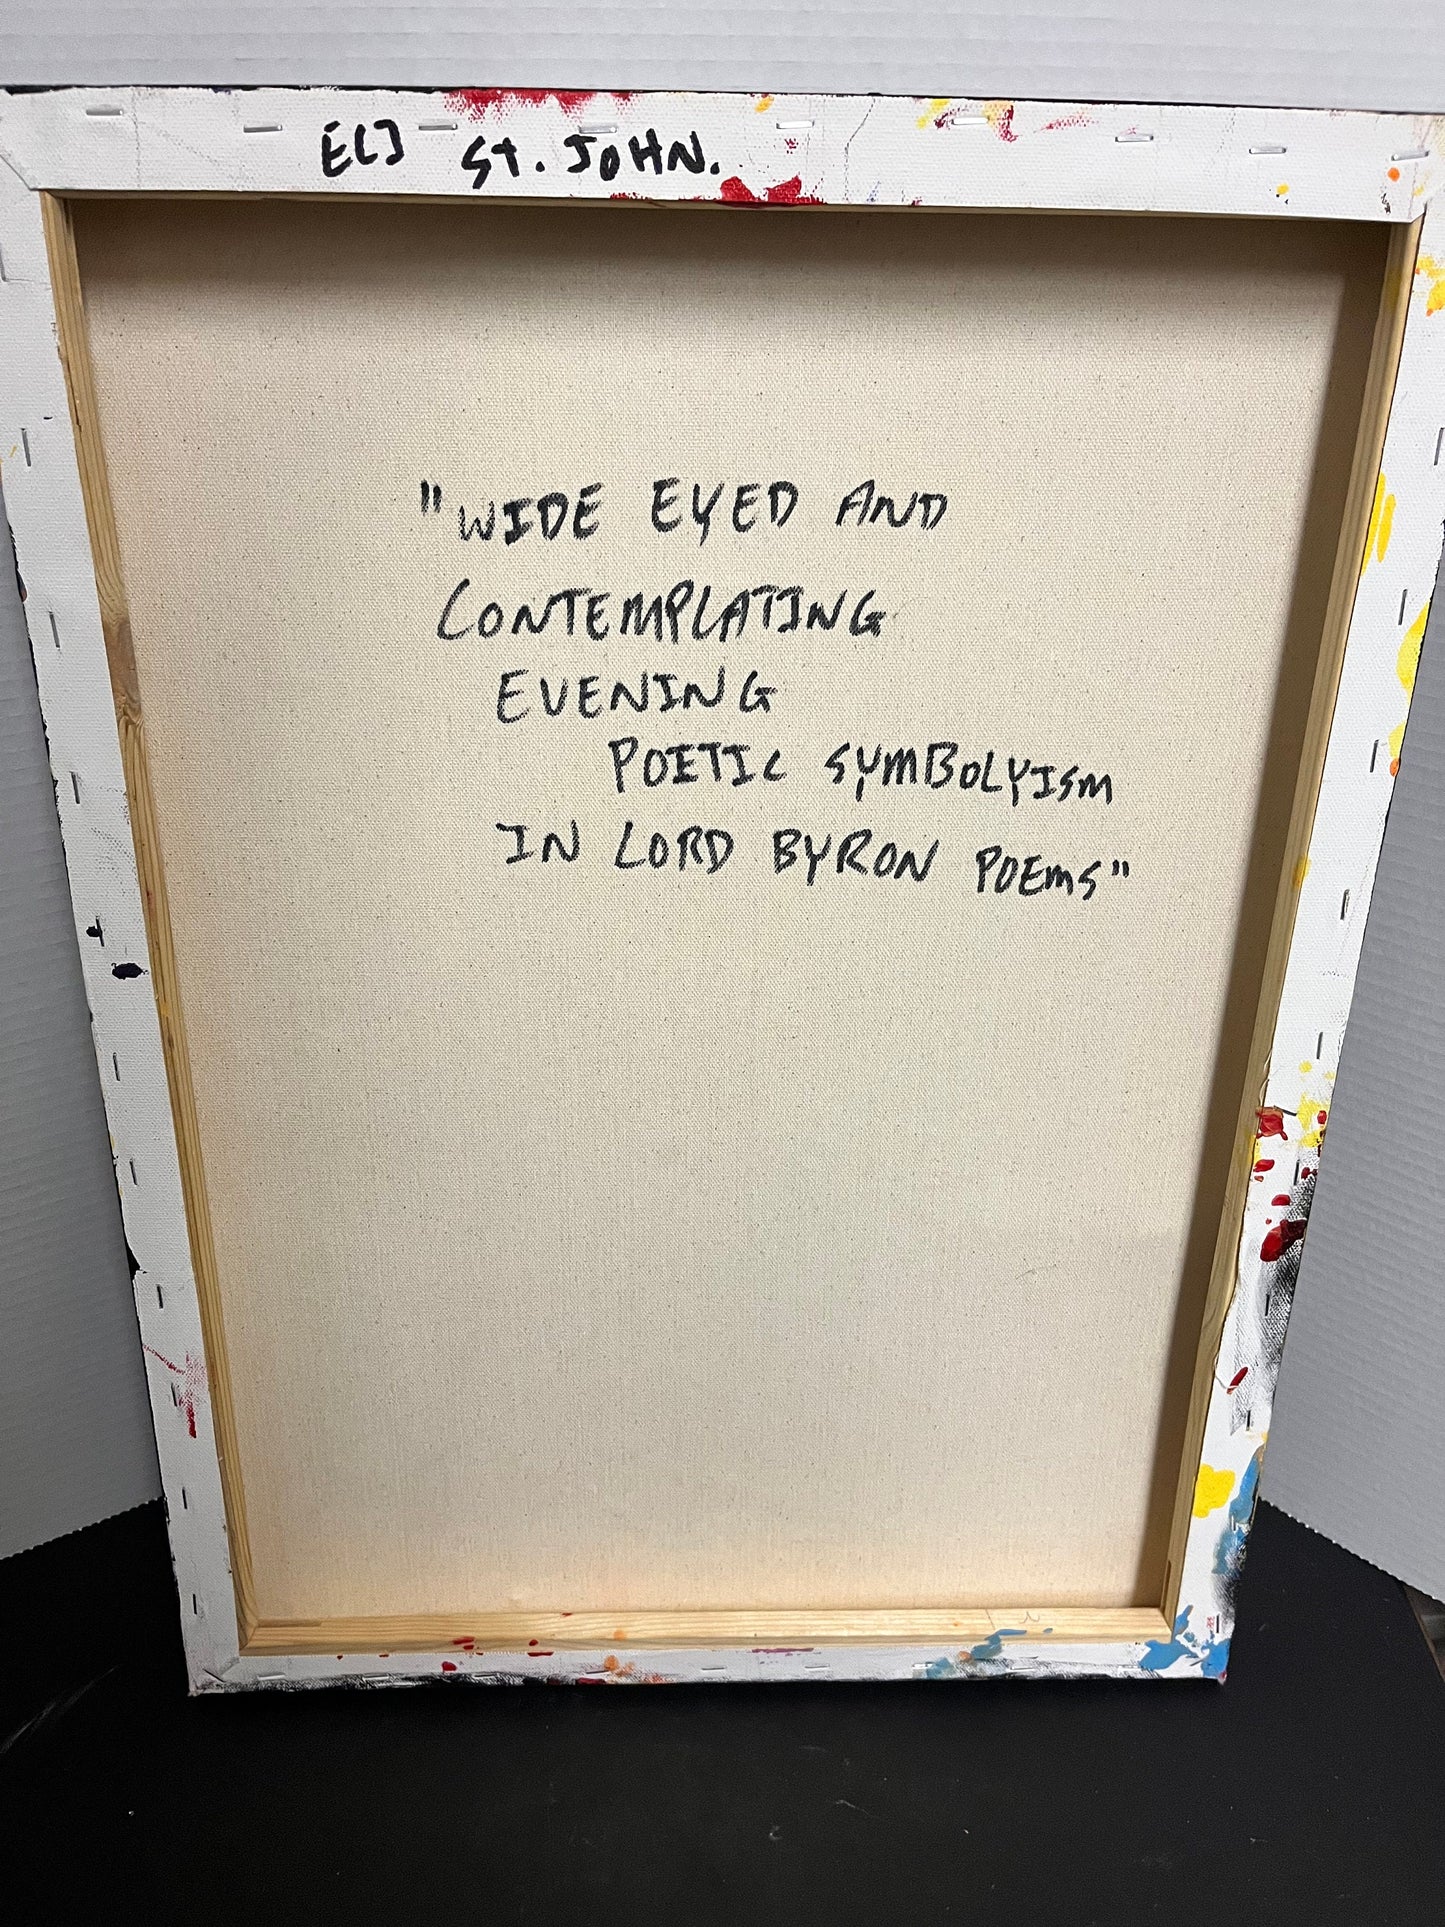 ELI ST. JOHN.
"WIDE EYED AND
CONTEMPLATING
EVENING
POETIC SYMBOLYISM
IN LORD BYRON POEMS"